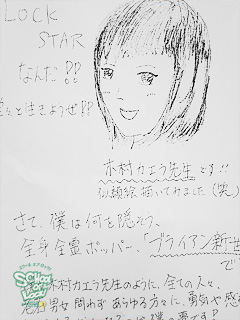 LOCK
STAR
なんだ!!
と生きようぜ!?
木村カエラ先生です!!
似顔絵描いてみました(笑)
さて、僕は何を隠そう、
全身全霊ポッパー、「ブライアン新
で
木村カエラ先生のように、全ての人々、
老若男女問わずあらゆる方々に、勇気や感